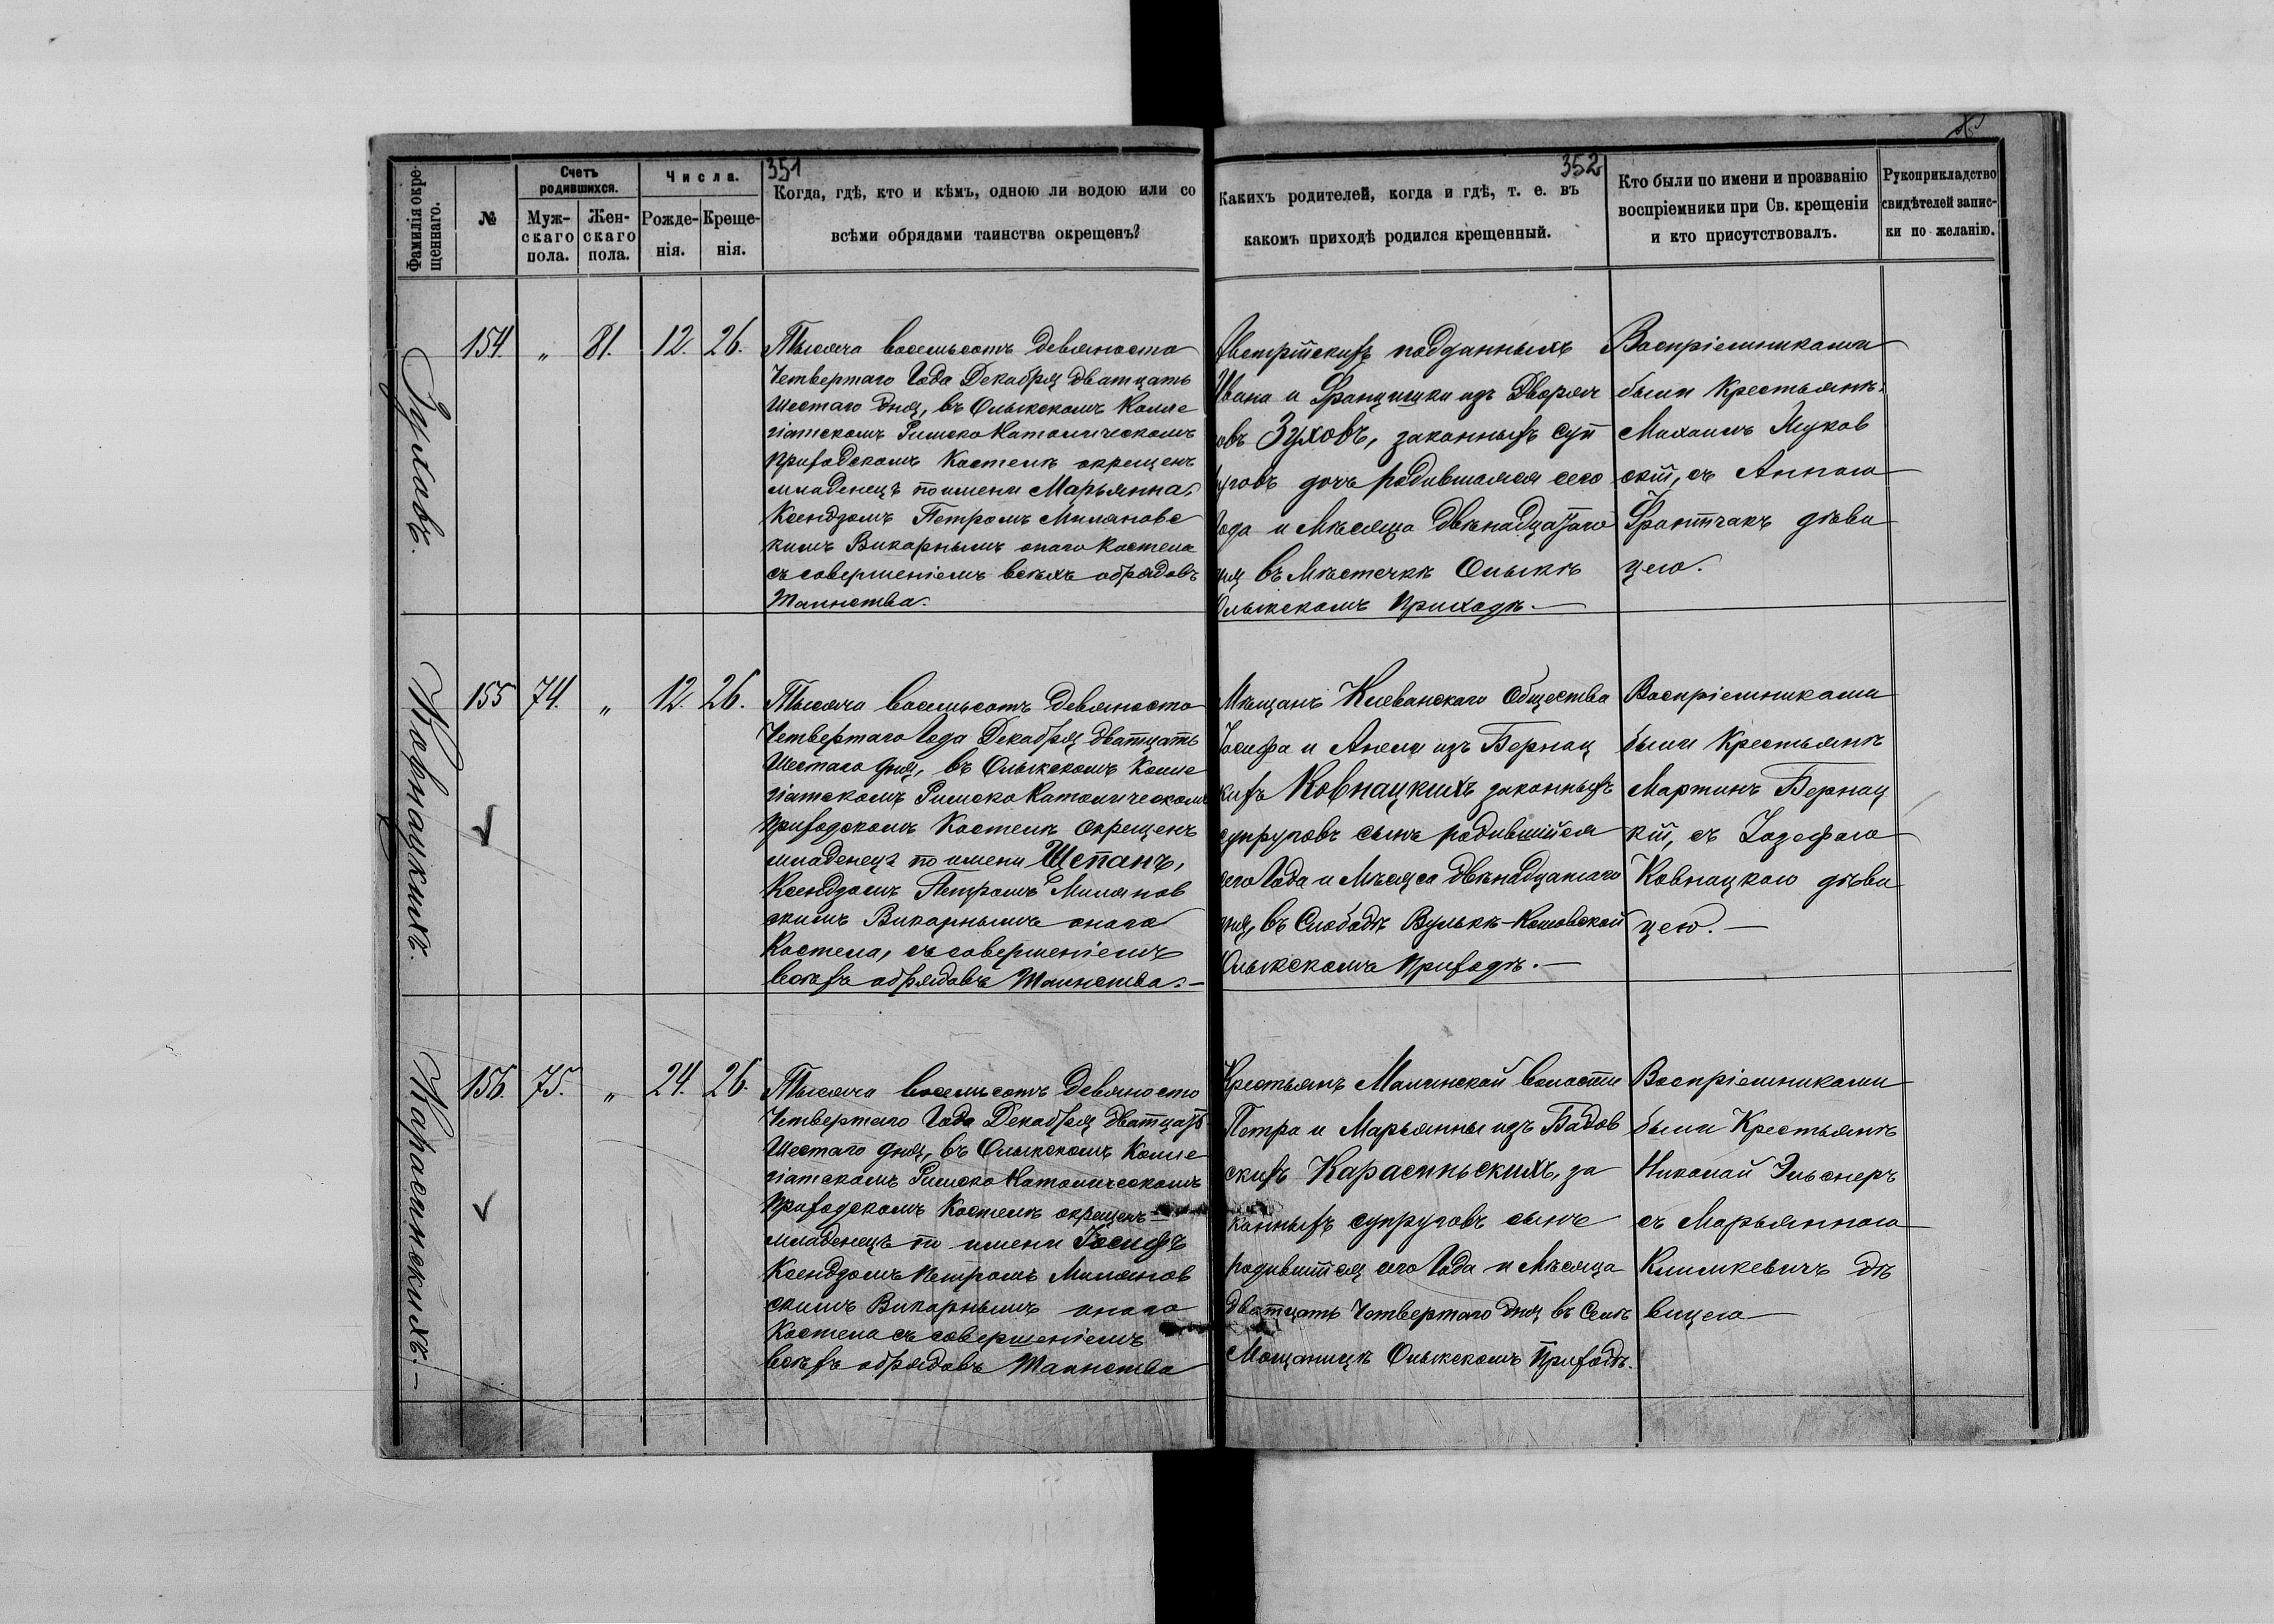 351
352
Фамилія окре-
щеннаго.
№
Счетъ
родившихся.
Муж-
скаго
пола.
Жен-
скаго
пола.
Числа.
Рожде-
нія.
Креще-
нія.
Когда, гдѣ, кто и кѣмъ, одною ли водою или со
всѣми обрядами таинства окрещенъ?
Какихъ родителей, когда и гдѣ, т. е. въ
какомъ приходѣ родился крещенный.
Кто были по имени и прозванію
воспріемники при Св. крещеніи
и кто присутствовалъ.
Рукоприкладство
свидѣтелей запис-
ки по желанію.
Зуховъ.
154. „ 81. 12. 26.
Тысяча восемьсотъ девяносто
Четвертаго Года Декабря дватцать
Шестаго дня, въ Олыкскомъ Колле
гіатскомъ Римско Католическомъ
приходскомъ Костелѣ окрещенъ
младенецъ по имени Марьянна,
Ксендзомъ Петромъ Миляновс
кимъ Викарнымъ онаго Костела
съ совершеніемъ всѣхъ обрядовъ
Таинства.
Австрійскихъ подданныхъ
Ивана и Францишки изъ Дворян
овъ Зуховъ, законныхъ суп
руговъ дочь родившаяся сего
Года и Мѣсяца двѣнадцатаго
дня въ Мѣстечкѣ Олыкѣ
Олыкскомъ Приходѣ.
Воспріемниками
были Крестьянѣ
Михаилъ Жуков
скій, съ Анною
Франтчакъ дѣви
цею.
Ковнацкихъ.
155 74. „ 12. 26.
Тысяча восемьсотъ девяносто
Четвертаго Года Декабря дватцать
Шестаго дня, въ Олыкскомъ Колле
гіатскомъ Римско Католическомъ
приходскомъ Костелѣ окрещенъ
младенецъ по имени Щепанъ,
Ксендзомъ Петромъ Милянов
скимъ Викарнымъ онаго
Костела, съ совершеніемъ
всѣхъ обрядовъ Таинства.
Мѣщанъ Клеванскаго Общества
Іосифа и Анели изъ Бернац
кихъ Ковнацкихъ законныхъ
супруговъ сынъ родившійся
сего Года и Мѣсяца двѣнадцатаго
дня, въ Слободѣ Вулькѣ-Котовской
Олыкскомъ Приходѣ.
Воспріемниками
были Крестьянѣ
Мартинъ Бернац
кій, съ Іозефою
Ковнацкою дѣви
цею.
Карасиньскихъ.
156. 75. „ 24. 26.
Тысяча восемьсотъ девяносто
Четвертаго Года Декабря дватцать
Шестаго дня, въ Олыкскомъ Колле
гіатскомъ Римско Католическомъ
Приходскомъ Костелѣ окрещенъ
младенецъ по имени Іосифъ
Ксендзомъ Петромъ Милянов
скимъ Викарнымъ онаго
Костела съ совершеніемъ
всѣхъ обрядовъ Таинства
Крестьянъ Малинской волости
Петра и Марьянны изъ Бадов
скихъ Карасиньскихъ, за
конныхъ супруговъ сынъ
родившійся сего Года и Мѣсяца
Дватцать Четвертаго дня въ Селѣ
Мощаницѣ Олыкскомъ Приходѣ.
Воспріемниками
были Крестьянѣ
Николай Эльснеръ
съ Марьянною
Климкевичъ дѣ
вицею